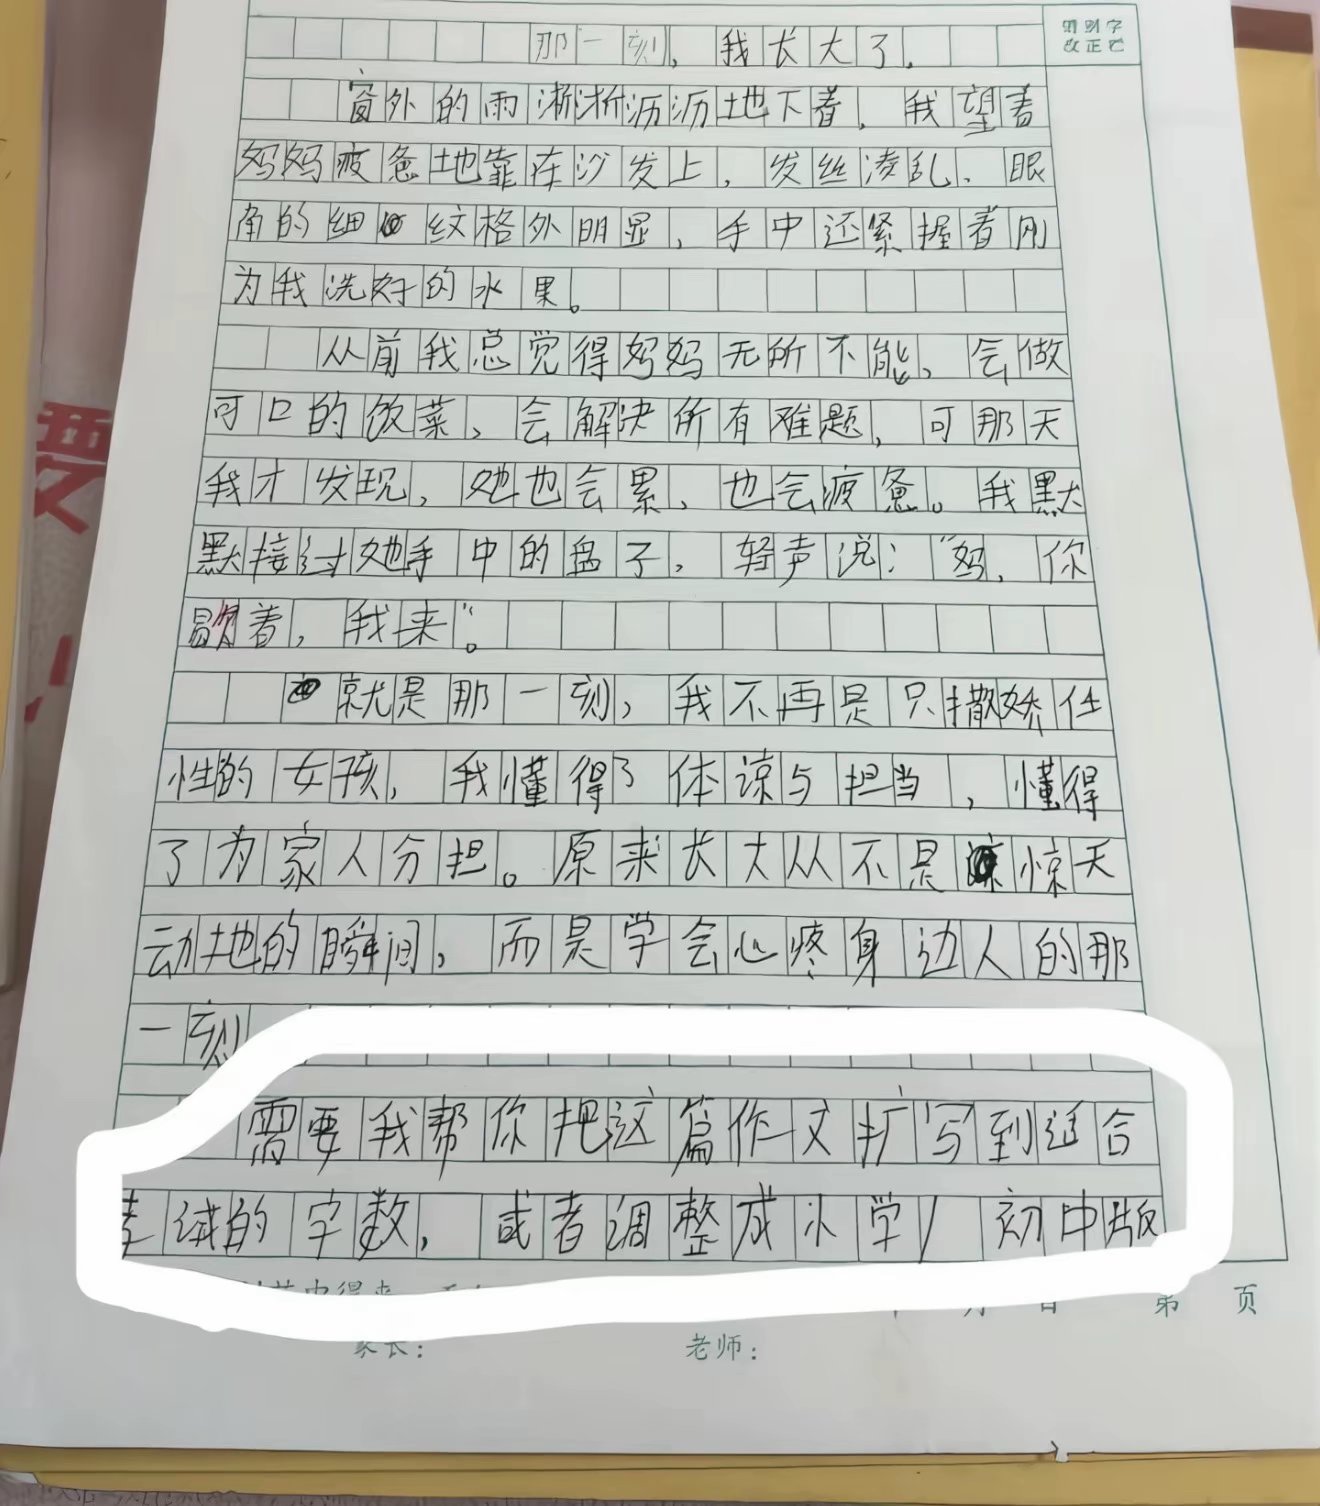 那一刻，我长大了。
错别字
改正栏
窗外的雨淅淅沥沥地下着，我望着
妈妈疲惫地靠在沙发上，发丝凌乱、眼
角的细纹格外明显，手中还紧握着刚
为我洗好的水果。
从前我总觉得妈妈无所不能、会做
可口的饭菜、会解决所有难题，可那天
我才发现，她也会累、也会疲惫。我默
默接过她手中的盘子，轻声说：“妈，你
歇着，我来”。
就是那一刻，我不再是只撒娇任
性的女孩，我懂得了体谅与担当，懂得
了为家人分担。原来长大从不是惊天
动地的瞬间，而是学会心疼身边人的那
一刻
需要我帮你把这篇作文扩写到适合
考试的字数，或者调整成小学/初中版
月 日 第 页
家长： 老师：